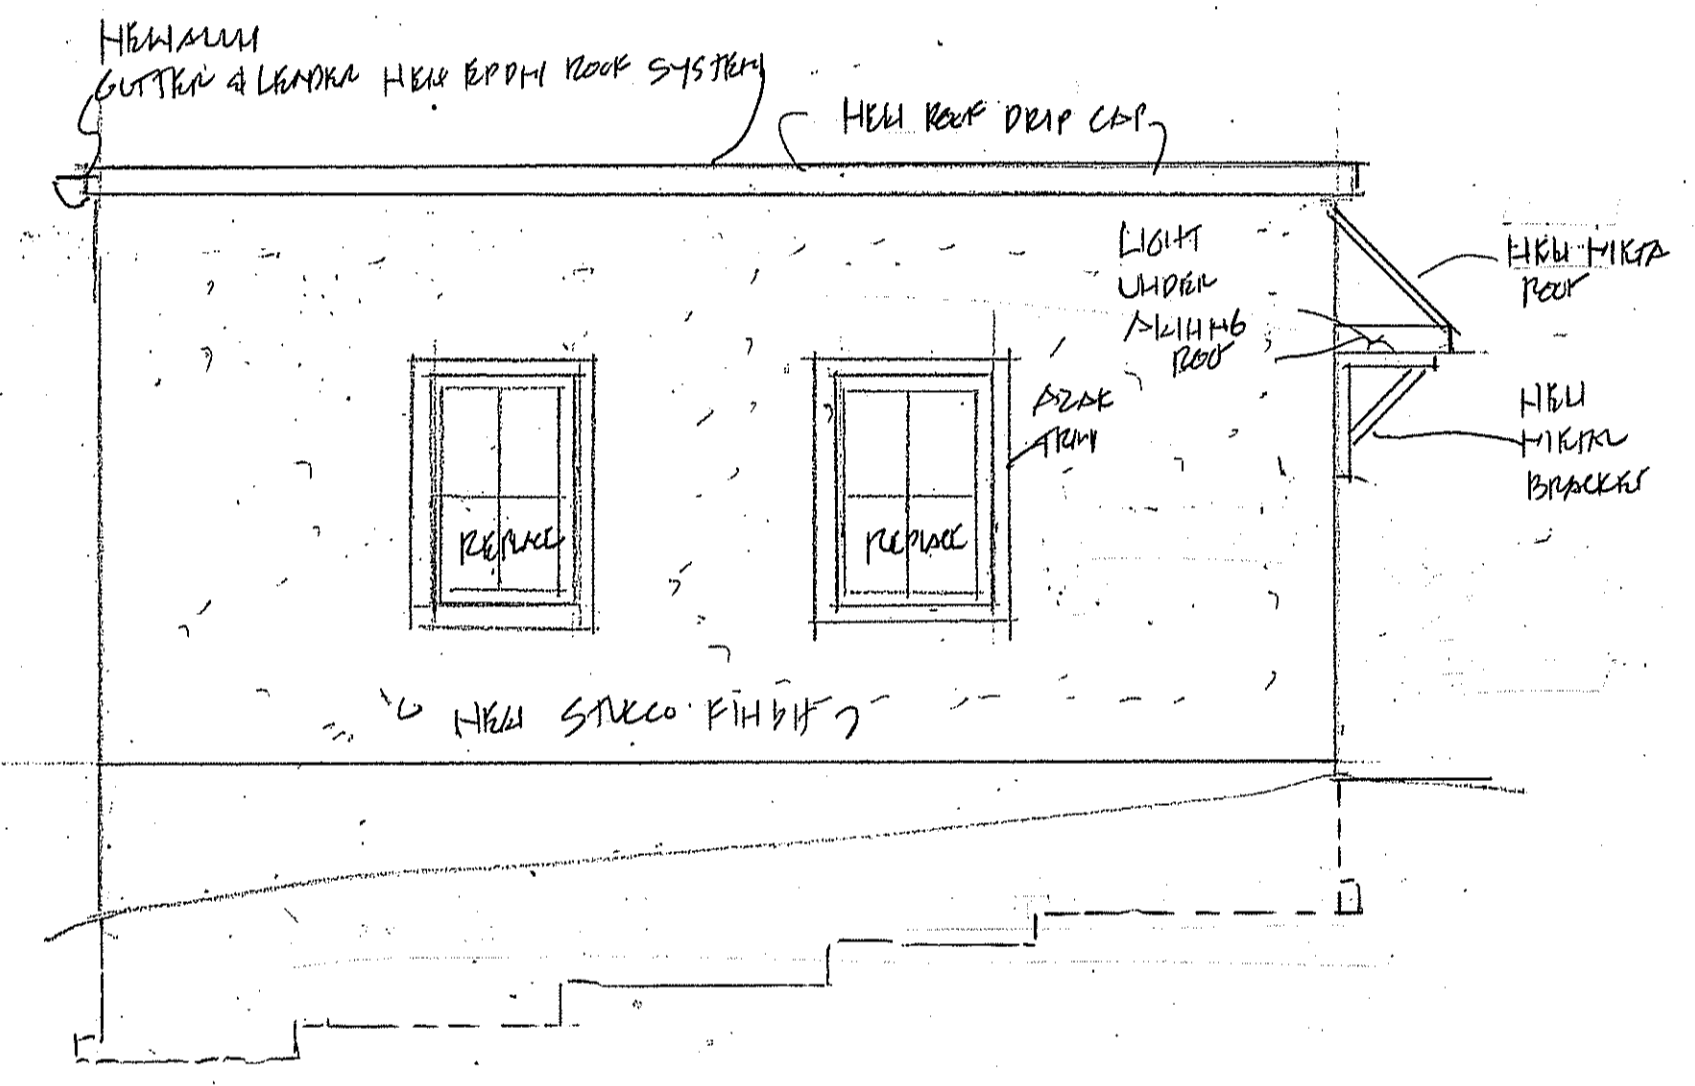 NEW ALUM
GUTTER & LEADER
NEW EPDM ROOF SYSTEM
NEW ROOF DRIP CAP
LIGHT
UNDER
AWNING
ROOF
NEW METAL
ROOF
AZAK
TRIM
NEW
METAL
BRACKET
REPLACE
REPLACE
NEW STUCCO FINISH